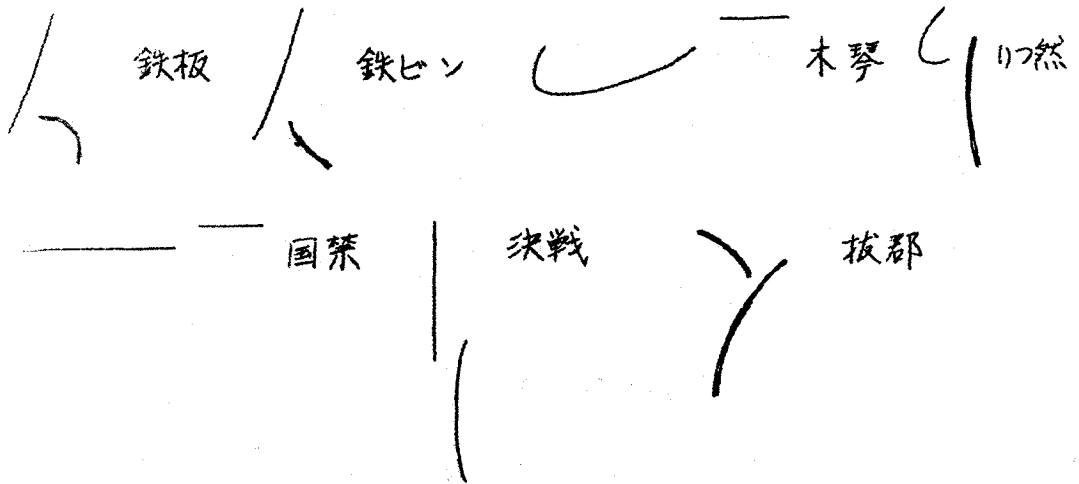 鉄板 鉄ビン 木琴 りつ然
国禁 決戦 抜郡